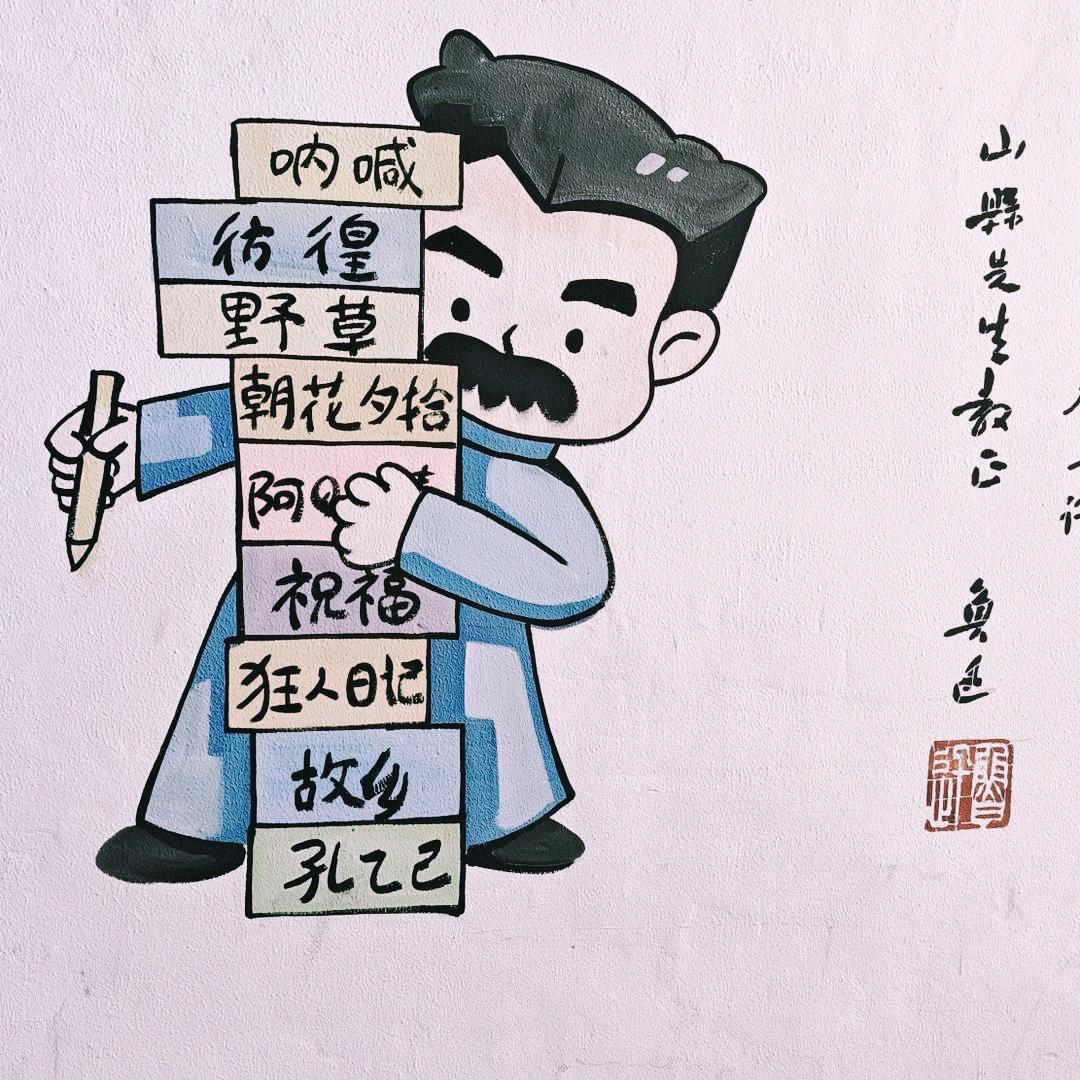 呐喊
彷徨
野草
朝花夕拾
阿Q
祝福
狂人日记
故乡
孔乙己
山縣先生教正
魯迅